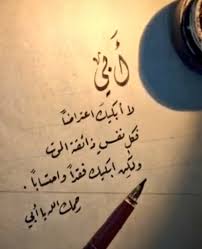 أبي
لا أبكيك اعتراضاً
فكل نفس ذائقة الموت
ولكن ابكيك فقداً واحتساباً .
رحمك الله يا أبي